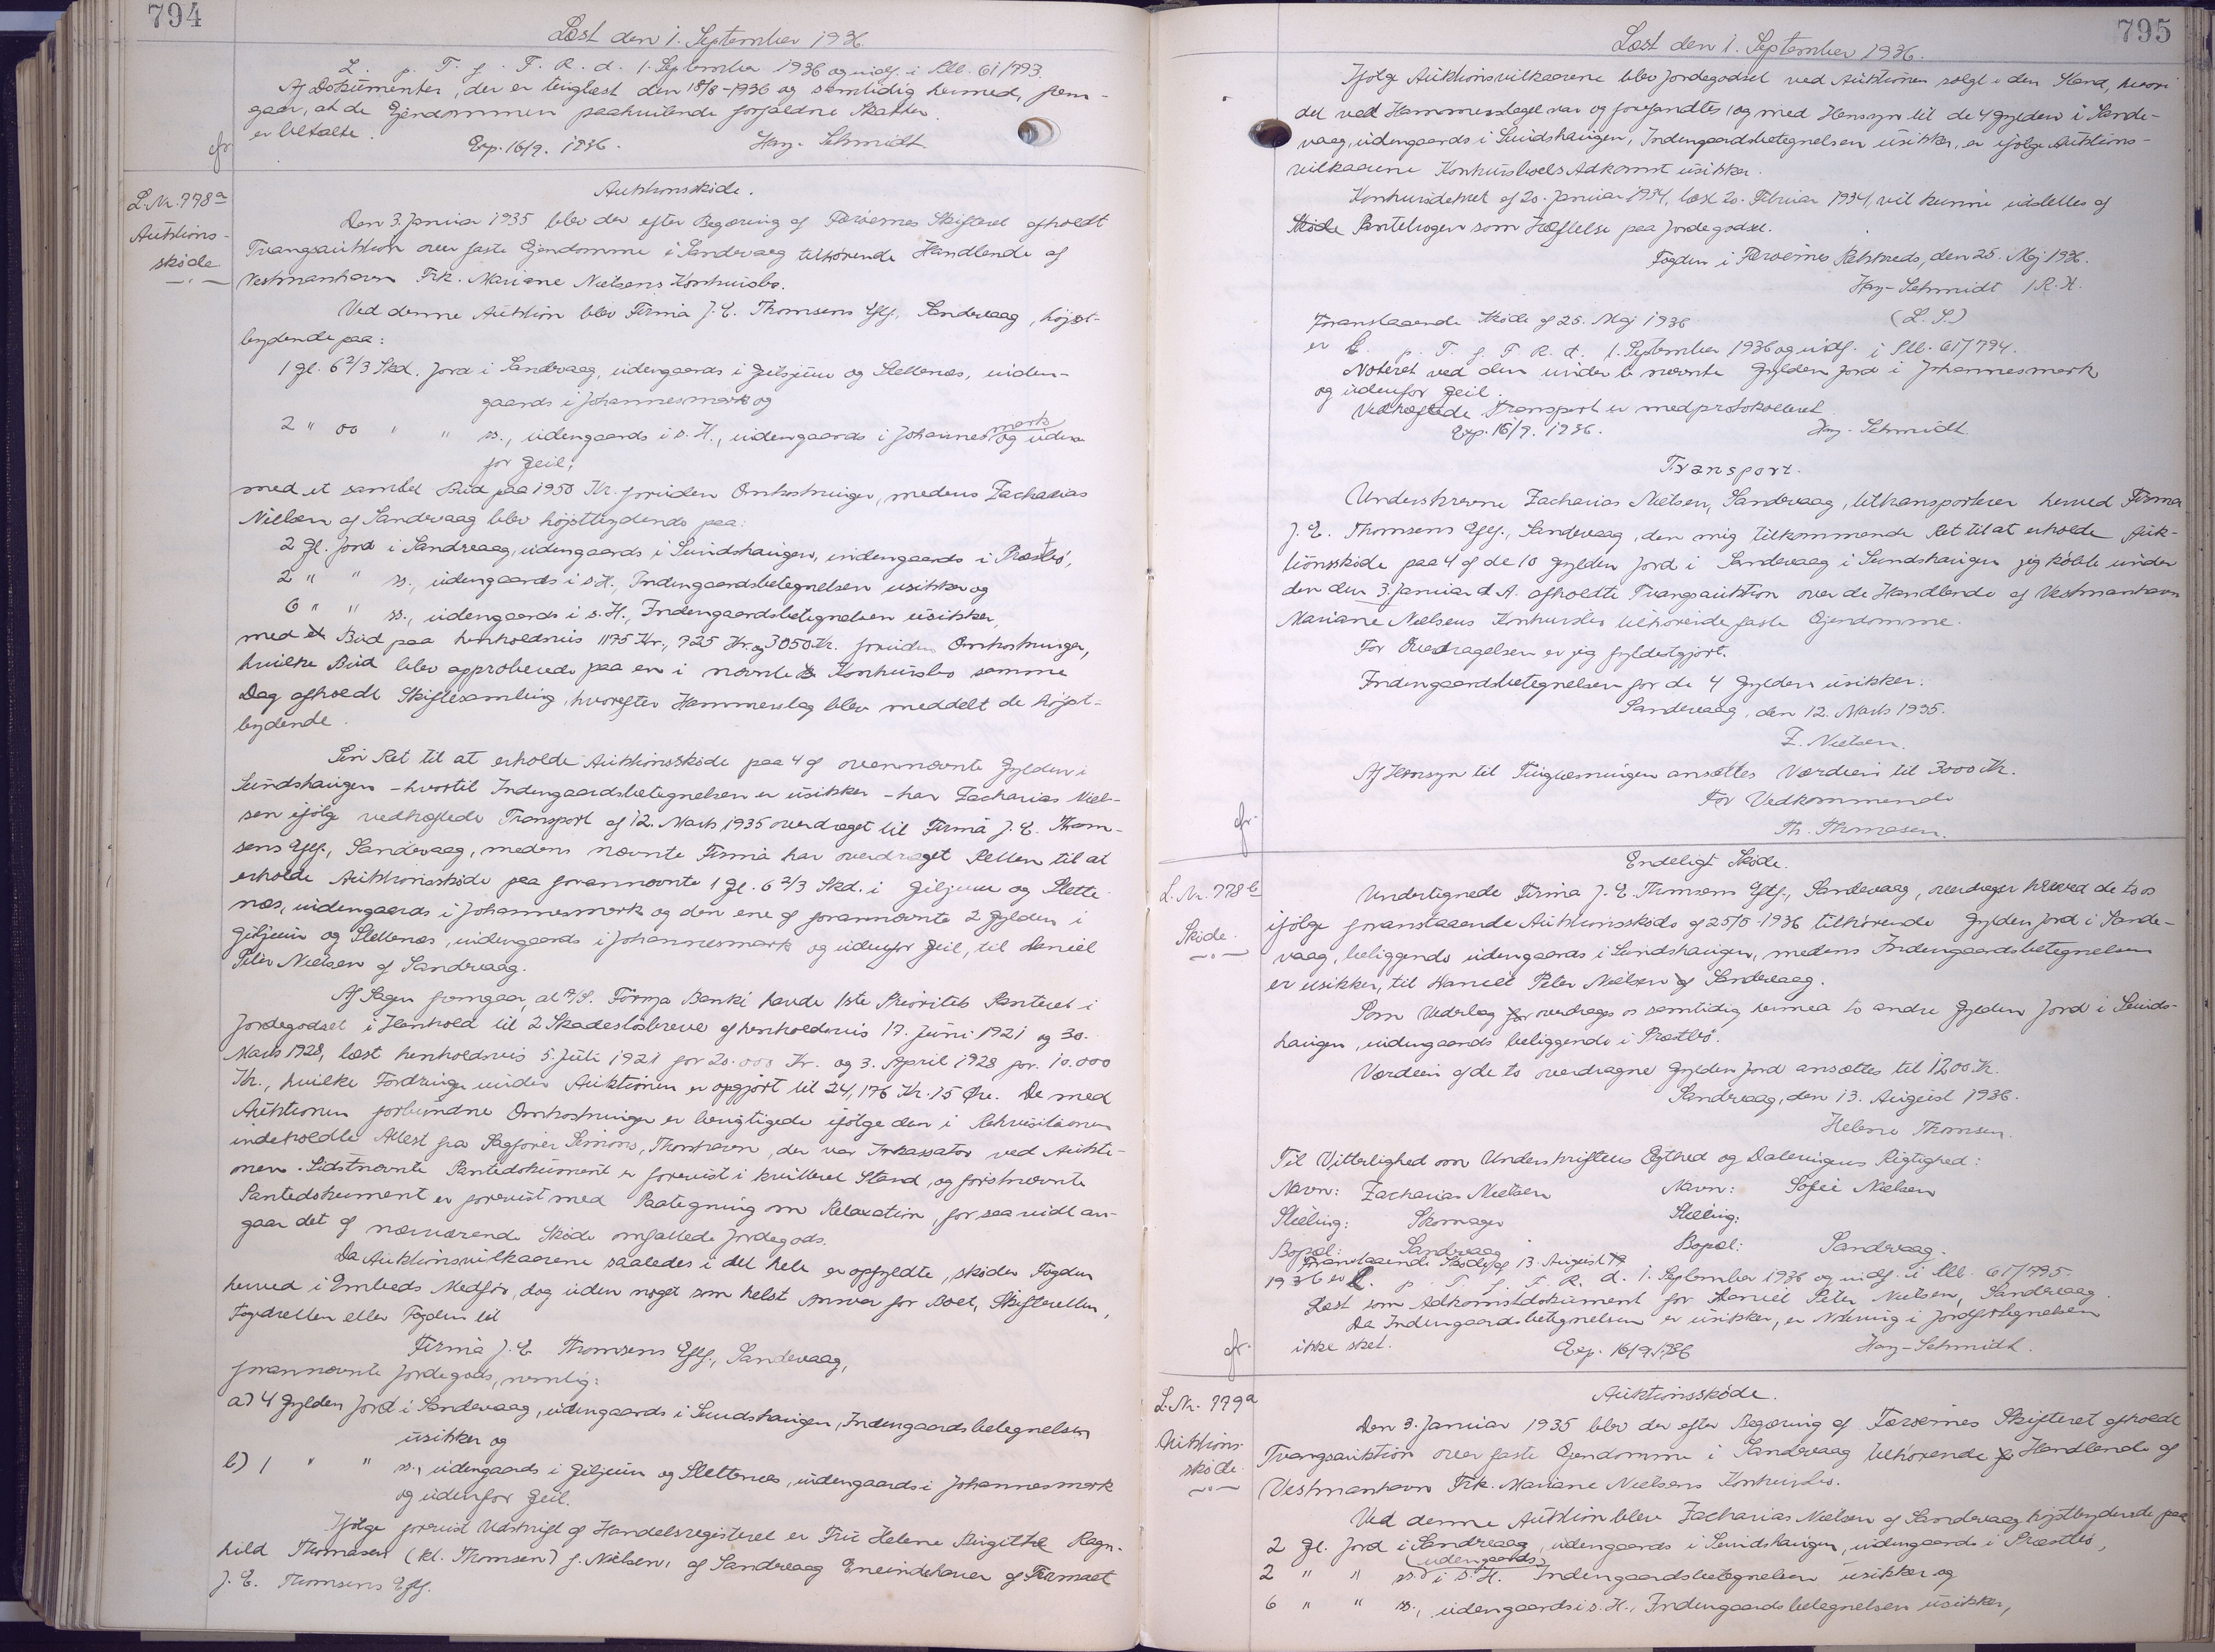 794
Læst den 1. September 1936.
L. p. T. f. F. R. d. 1. September 1936 og indf. i Sll. 61/793.
Af Dokumenter, der er tinglæst den 18/8-1936 og samtidig hermed, frem-
gaar, at de Ejendommen paahvilende forfaldne Skatter
er betalte.
Exp. 16/9. 1936.
Hay-Schmidt
fr.
L. Nr. 778a
Auktions-
skøde
Auktionsskøde.
Den 3. Januar 1935 blev der efter Begæring af Færøernes Skifteret afholdt
Tvangsauktion over faste Ejendomme i Sandevaag tilhørende Handlende af
Vestmanhavn Frk. Mariane Nielsens Konkursbo.
Ved denne Auktion blev Firma J. E. Thomsens Eftf., Sandevaag, højst-
bydende paa:
1 Gl. 6 2/3 Skd. Jord i Sandevaag, udengaards i Giljum og Slettenæs, inden-
gaards i Johannesmark og
2 " 00 " " ss., udengaards i s. H., indengaards i Johannesmark og uden-
for Geil;
med et samlet Bud paa 1950 Kr. foruden Omkostninger, medens Zacharias
Nielsen af Sandevaag blev højstbydende paa:
2 Gl. Jord i Sandevaag, udengaards i Sundshaugen, indengaards i Præstbø,
2 " " ss., udengaards i s. H., Indengaardsbetegnelsen usikker og
6 " " ss., udengaards i s. H., Indengaardsbetegnelsen usikker,
med et Bud paa henholdsvis 1175 Kr., 925 Kr. og 3050 Kr. foruden Omkostninger,
hvilke Bud blev approberede paa en i nævnte Konkursbo samme
Dag afholdt Skiftesamling, hvorefter Hammerslag blev meddelt de højst-
bydende.
Sin Ret til at erholde Auktionsskøde paa 4 af ovennævnte Gylden i
Sundshaugen - hvortil Indengaardsbetegnelsen er usikker - har Zacharias Niel-
sen ifølge vedhæftede Transport af 12. Marts 1935 overdraget til Firma J. E. Thom-
sens Eftf., Sandevaag, medens nævnte Firma har overdraget Retten til at
erholde Auktionsskøde paa forannævnte 1 Gl. 6 2/3 Skd. i Giljum og Slette-
næs, indengaards i Johannesmark og den ene af forannævnte 2 Gylden i
Giljum og Slettenæs, indengaards i Johannesmark og udenfor Geil, til Daniel
Peter Nielsen af Sandevaag.
Af Sagen fremgaar, at A/S. Föroya Banki havde 1ste Prioritets Panteret i
Jordegodset i Henhold til 2 Skadesløsbreve af henholdsvis 17. Juni 1921 og 30.
Marts 1928, læst henholdsvis 5. Juli 1921 for 20.000 Kr. og 3. April 1928 for 10.000
Kr., hvilke Fordringer under Auktionen er opgjort til 24,176 Kr. 15 Øre. De med
Auktionen forbundne Omkostninger er berigtigede ifølge den i Rekvisitionen
indeholdte Attest fra Sagfører Simons, Thorshavn, der var Inkassator ved Aukti-
onen. Sidstnævnte Pantedokument er forevist i kvitteret Stand, og førstnævnte
Pantedokument er forevist med Paategning om Relaxation, for saa vidt an-
gaar det af nærværende Skøde omfattede Jordegods.
Da Auktionsvilkaarene saaledes i det hele er opfyldte, skøder Fogden
herved i Embeds Medfør, dog uden noget som helst Ansvar for Boet, Skifteretten,
Fogedretten eller Fogden til
Firma J. E. Thomsens Eftf., Sandevaag,
forannævnte Jordegods, nemlig:
a) 4 Gylden Jord i Sandevaag, udengaards i Sundshaugen, Indengaardsbetegnelsen
usikker og
b) 1 " " ss., udengaards i Giljum og Slettenæs, indengaards i Johannesmark
og udenfor Geil.
Ifølge forevist Udskrift af Handelsregisteret er Fru Helene Birgithe Ragn-
hild Thomasen (kl. Thomsen) f. Nielsen, af Sandevaag Eneindehaver af Firmaet
J. E. Thomsens Eftf.
795
Læst den 1. September 1936.
Ifølge Auktionsvilkaarene blev Jordegodset ved Auktionen solgt i den Stand, hvori
det ved Hammerslaget var og forefandtes, og med Hensyn til de 4 Gylden i Sande-
vaag, udengaards i Sundshaugen, Indengaardsbetegnelsen usikker, er ifølge Auktions-
vilkaarene Konkursboets Adkomst usikker.
Konkursdekret af 20. Januar 1934, læst 20. Februar 1934, vil kunne udslettes af
Skøde Pantebogen som Hæftelse paa Jordegodset.
Fogden i Færøernes Retskreds, den 25. Maj 1936.
Hay-Schmidt / R. H.
(L. S.)
Foranstaaende Skøde af 25. Maj 1936
er L. p. T. f. F. R. d. 1. September 1936 og indf. i Sll. 61/794.
Noteret ved den under b nævnte Gylden Jord i Johannesmark
og udenfor Geil.
Vedhæftede Transport er medprotokolleret
Exp. 16/9. 1936.
Hay-Schmidt
Transport.
Underskrevne Zacharias Nielsen, Sandevaag, tiltransporterer herved Firma
J. E. Thomsens Eftf., Sandevaag, den mig tilkommende Ret til at erholde Auk-
tionsskøde paa 4 af de 10 Gylden Jord i Sandevaag i Sundshaugen jeg købte under
den den 3. Januar d. A. afholdte Tvangsauktion over de Handlende af Vestmanhavn
Mariane Nielsens Konkursbo tilhørende faste Ejendomme.
For Overdragelsen er jeg fyldestgjort.
Indengaardsbetegnelsen for de 4 Gylden usikker.
Sandevaag, den 12. Marts 1935.
Z. Nielsen.
Af Hensyn til Tinglæsningen ansættes Værdien til 3000 Kr.
For Vedkommende
Th. Thomasen.
fr.
L. Nr. 778b
Skøde.
Endeligt Skøde.
Undertegnede Firma J. E. Thomsens Eftf., Sandevaag, overdrager herved de to os
ifølge foranstaaende Auktionsskøde af 25/5-1936 tilhørende Gylden Jord i Sande-
vaag, beliggende udengaards i Sundshaugen, medens Indengaardsbetegnelsen
er usikker, til Daniel Peter Nielsen af Sandevaag.
Som Vederlag for overdrages os samtidig hermed to andre Gylden Jord i Sunds-
haugen, indengaards beliggende i Præstbø.
Værdien af de to overdragne Gylden Jord ansættes til 1200 Kr.
Sandevaag, den 13. August 1936.
Helene Thomsen.
Til Vitterlighed om Underskriftens Ægthed og Dateringens Rigtighed:
Navn: Zacharias Nielsen Navn: Sofie Nielsen
Stilling: Skomager Stilling:
Bopæl: Sandevaag Bopæl: Sandevaag.
Foranstaaende Skøde af 13. August
1936 er L. p. T. f. F. R. d. 1. September 1936 og indf. i Sll. 61/795.
Læst som Adkomstdokument for Daniel Peter Nielsen, Sandevaag.
Da Indengaardsbetegnelsen er usikker, er Notering i Jordfortegnelsen
ikke sket.
Exp. 16/9. 1936
Hay-Schmidt.
fr.
L. Nr. 779a
Auktions-
skøde.
Auktionsskøde.
Den 3. Januar 1935 blev der efter Begæring af Færøernes Skifteret afholdt
Tvangsauktion over faste Ejendomme i Sandevaag tilhørende Handlende af
Vestmanhavn Frk. Mariane Nielsens Konkursbo.
Ved denne Auktion blev Zacharias Nielsen af Sandevaag højstbydende paa
2 Gl. Jord i Sandevaag, udengaards i Sundshaugen, indengaards i Præstbø,
2 " " ss. (udengaards) i s. H. Indengaardsbetegnelsen usikker og
6 " " ss., udengaards i s. H., Indengaardsbetegnelsen usikker,